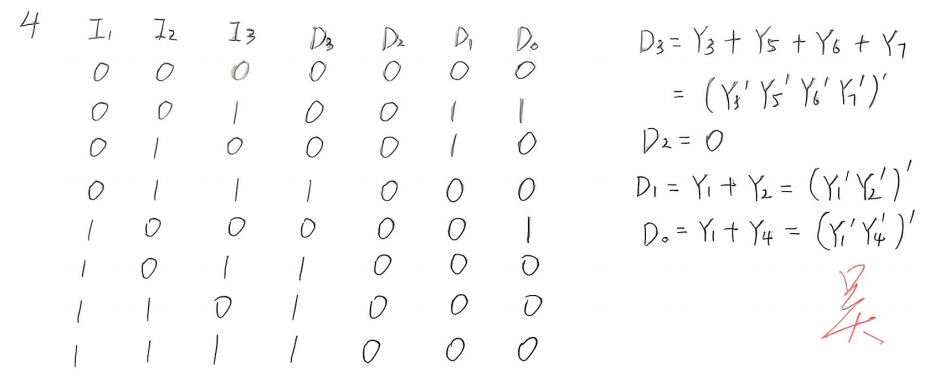 4 I₁ I₂ I₃ D₃ D₂ D₁ D₀
0 0 0 0 0 0 0
0 0 1 0 0 1 1
0 1 0 0 0 1 0
0 1 1 1 0 0 0
1 0 0 0 0 0 1
1 0 1 1 0 0 0
1 1 0 1 0 0 0
1 1 1 1 0 0 0
D₃ = Y₃ + Y₅ + Y₆ + Y₇
= (Y₃' Y₅' Y₆' Y₇')'
D₂ = 0
D₁ = Y₁ + Y₂ = (Y₁' Y₂')'
D₀ = Y₁ + Y₄ = (Y₁' Y₄')'